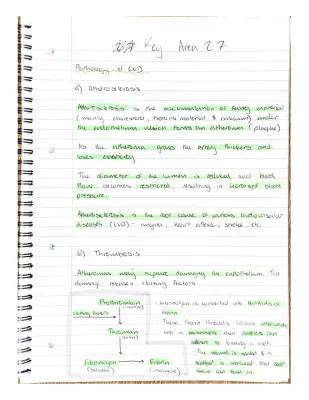 Key Area 2.7
Pathology of CVD
a) Atherosclerosis
Atherosclerosis is the accumulation of fatty material
(mainly cholesterol, fibrous material & calcium) under
the endothelium which forms an atheroma (plaque)
As the atheroma grows the artery thickens and
loses elasticity
The diameter of the lumen is reduced and blood
flow becomes restricted, resulting in increased blood
pressure.
Atherosclerosis is the root cause of various cardiovascular
diseases (CVD) - angina, heart attack, stroke, etc.
b) Thrombosis
Atheromas may rupture damaging the endothelium. The
damage releases clotting factors
Prothrombin
(inactive)
clotting factors
Thrombin
(active)
Fibrinogen
(soluble)
Fibrin
(insoluble)
Fibrinogen is converted into threads of
fibrin
These fibrin threads become
into a meshwork that platelets can
adhere to forming a clot.
The wound is sealed & a
scaffold is produced and scar
tissue can form on.